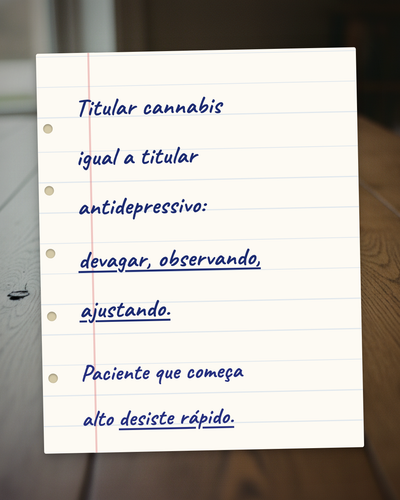 Titular cannabis
igual a titular
antidepressivo:
devagar, observando,
ajustando.
Paciente que começa
alto desiste rápido.